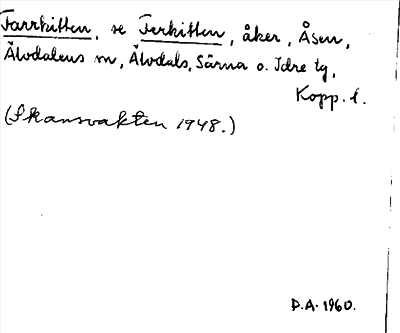 Farrkitten, se Ferkitten, åker, Åsen,
Älvdalens sn, Älvdals, Särna o. Idre tg,
Kopp. l.
(Skansvakten 1948.)
D.A. 1960.